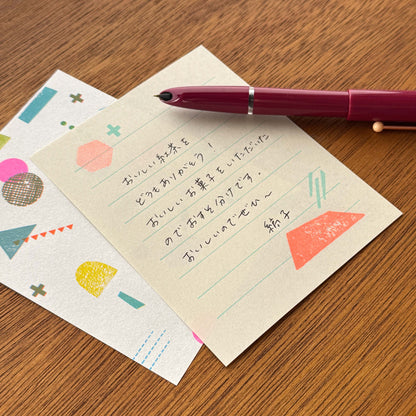 おいしい紅茶を
どうもありがとう!
おいしいお菓子をいただいた
のでおすそ分けです。
おいしいのでぜひ〜